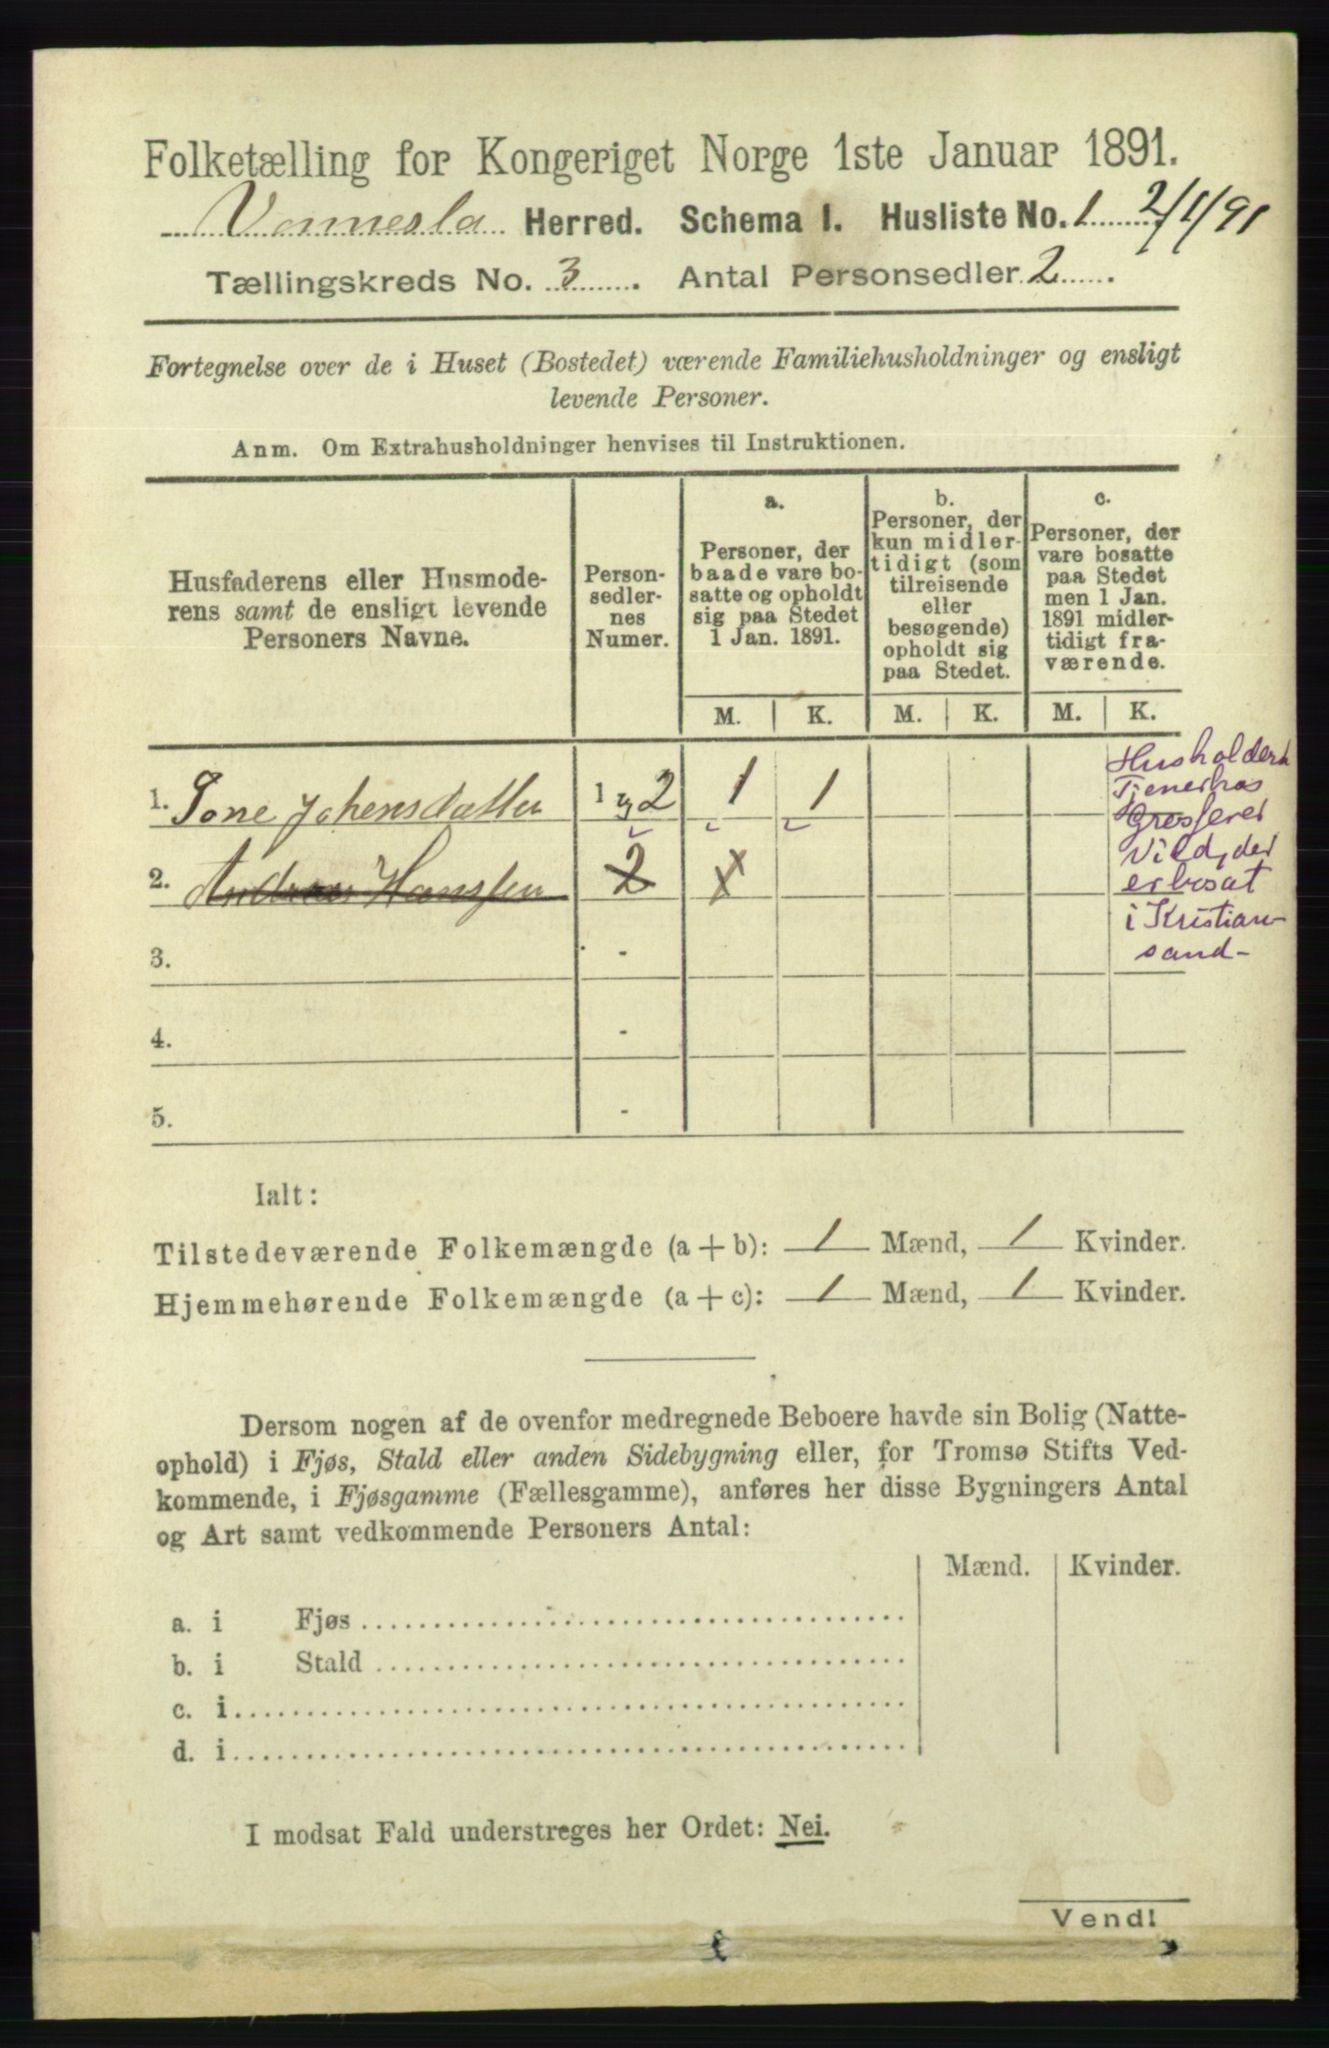 Folketælling for Kongeriget Norge 1ste Januar 1891.
Vennesla Herred. Schema I. Husliste No. 1 2/1/91
Tællingskreds No. 3. Antal Personsedler 2.
Fortegnelse over de i Huset (Bostedet) værende Familiehusholdninger og ensligt
levende Personer.
Anm. Om Extrahusholdninger henvises til Instruktionen.
Husfaderens eller Husmode-
rens samt de ensligt levende
Personers Navne.
Person-
sedler-
nes
Numer.
a.
Personer, der
baade vare bo-
satte og opholdt
sig paa Stedet
1 Jan. 1891.
b.
Personer, der
kun midler-
tidigt (som
tilreisende
eller
besøgende)
opholdt sig
paa Stedet.
c.
Personer, der
vare bosatte
paa Stedet
men 1 Jan.
1891 midler-
tidigt fra-
værende.
M. K. M. K. M. K.
1. Tone Johensdatter 1 og 2 1 1
2. Andreas Hanssen 2 x
3. -
4. -
5. -
Husholdersk
Tjener hos
Grosserer
Vild, der
er bosat
i Kristian-
sand-
Ialt:
Tilstedeværende Folkemængde (a + b): 1 Mænd, 1 Kvinder.
Hjemmehørende Folkemængde (a + c): 1 Mænd, 1 Kvinder.
Dersom nogen af de ovenfor medregnede Beboere havde sin Bolig (Natte-
ophold) i Fjøs, Stald eller anden Sidebygning eller, for Tromsø Stifts Ved-
kommende, i Fjøsgamme (Fællesgamme), anføres her disse Bygningers Antal
og Art samt vedkommende Personers Antal:
Mænd. Kvinder.
a. i Fjøs
b. i Stald
c. i
d. i
I modsat Fald understreges her Ordet: Nei.
Vend!